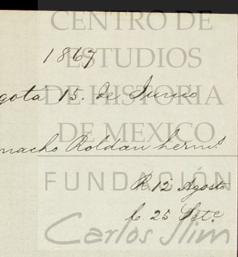 CENTRO DE
ESTUDIOS
1867
DE HISTORIA
gota 15. de Junio
DE MEXICO
macho Roldan herms
FUNDACIÓN
R 12 Agosto
C. 25 Ste
Carlos Slim